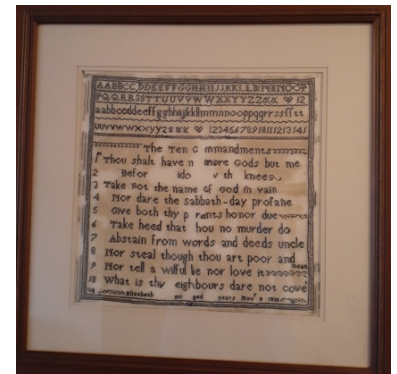 AABBCCDDEEFFGGHHIIJJKKLLMMNNOOP
PQQRRSSTTUUVVWWXXYYZZ&& 12
aabbccddeeffgghhiijjkkllmmnnooppqqrrssfftt
uuvvwwxxyyzz&& 123456789101112131415
The Ten C mmandments
1 Thou shalt have n more Gods but me
2 Befor ido th knees
3 Take not the name of God in vain
4 Nor dare the sabbath-day profane
5 Give both thy p rents honor due
6 Take heed that hou no murder do
7 Abstain from words and deeds uncle
8 Nor steal though thou art poor and
mean
9 Nor tell a wilful lie nor love it
10 What is thy eighbours dare not cove
Elizabeth aged years Nov